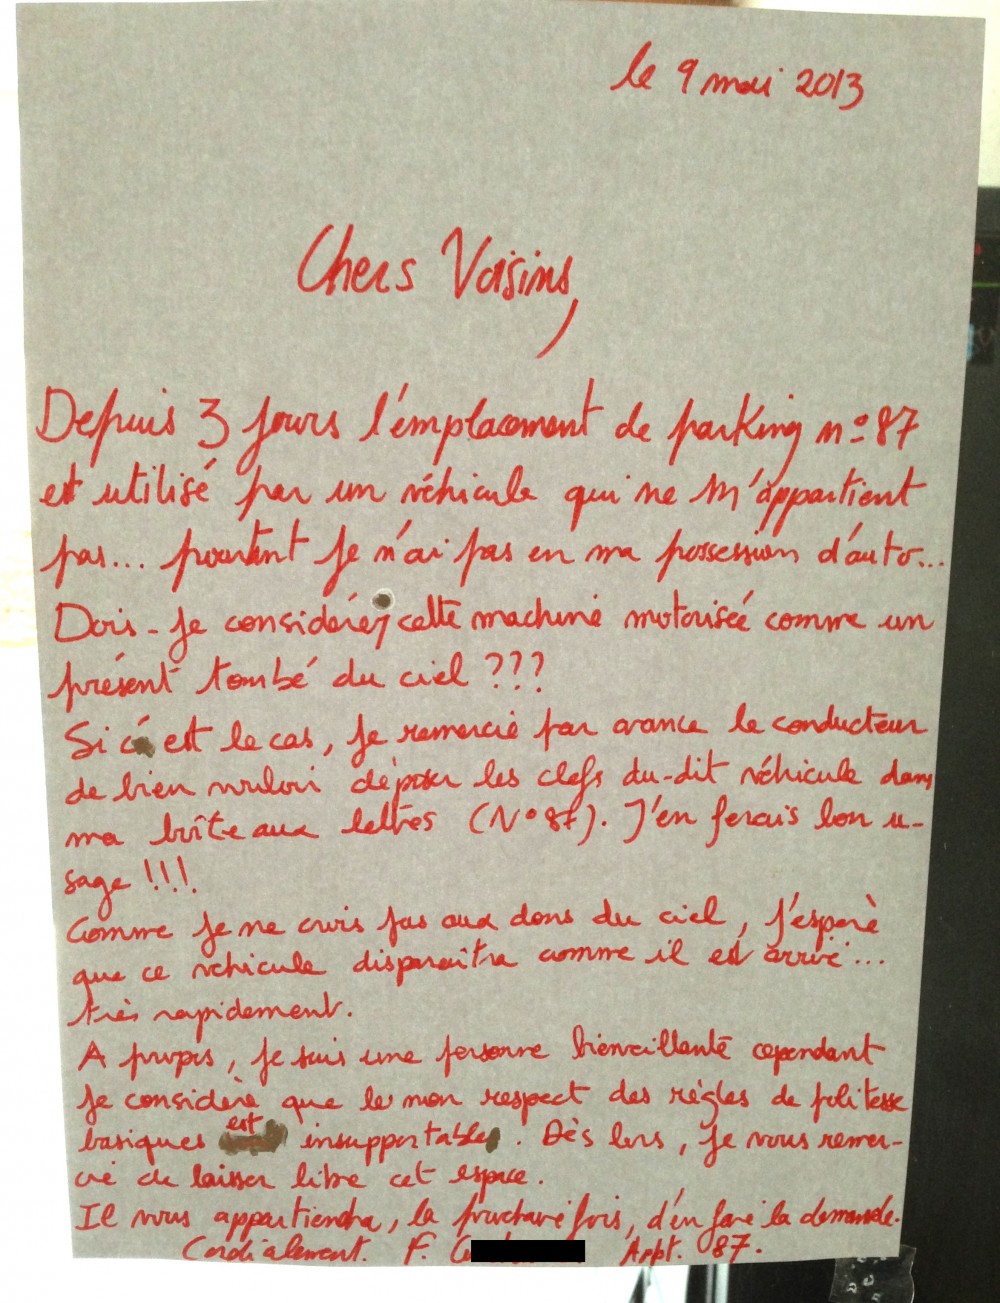 le 9 mai 2013
Chers Voisins,
Depuis 3 jours l'emplacement de parking n° 87
est utilisé par un véhicule qui ne m'appartient
pas... pourtant je n'ai pas en ma possession d'auto...
Dois-je considérer cette machine motorisée comme un
présent tombé du ciel ???
Si c'est le cas, je remercie par avance le conducteur
de bien vouloir déposer les clefs du-dit véhicule dans
ma boîte aux lettres (N° 87). J'en ferais bon u-
sage !!!
Comme je ne crois pas aux dons du ciel, j'espère
que ce véhicule disparaîtra comme il est arrivé...
très rapidement.
A propos, je suis une personne bienveillante cependant
je considère que le non respect des règles de politesse
basiques est insupportable. Dès lors, je vous remer-
cie de laisser libre cet espace.
Il vous appartiendra, la prochaine fois, d'en faire la demande.
Cordialement. F. Appt. 87.